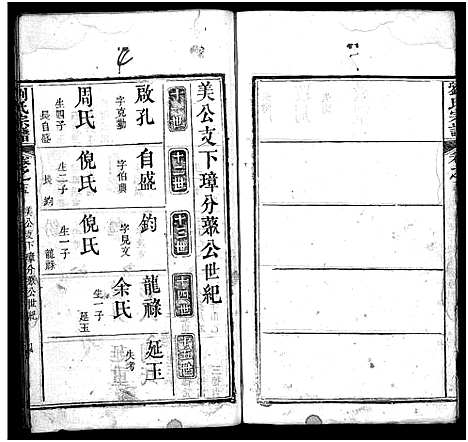 劉氏宗譜
卷之
美公支下璋分蔉公世紀
十一世
十二世
十三世
十四世
十五世
啟孔
字克勤
周氏
生四子
長自盛
自盛
字伯興
倪氏
生二子
長鈞
鈞
字見文
倪氏
生一子
龍祿
龍祿
余氏
生一子
延玉
延玉
失考
劉氏宗譜
卷之五
美公支下璋分蔉公世紀